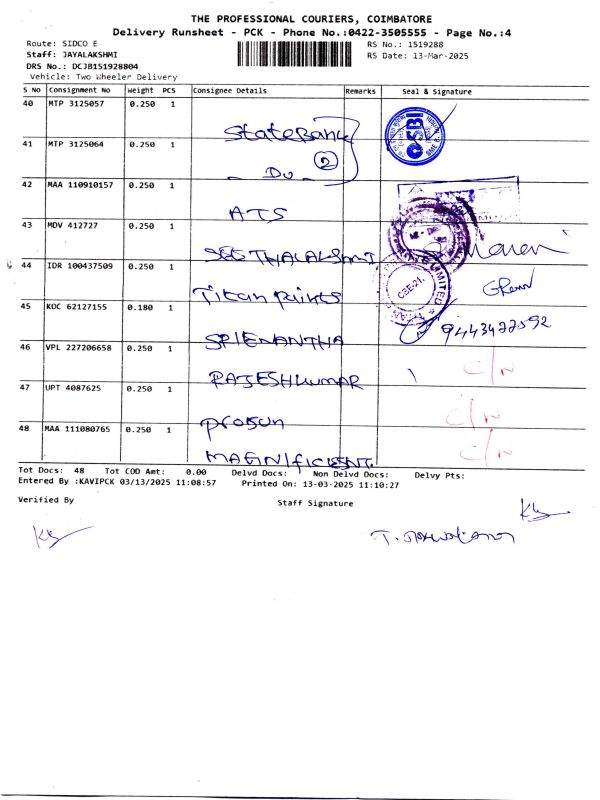 THE PROFESSIONAL COURIERS, COIMBATORE
Delivery Runsheet - PCK - Phone No.:0422-3505555 - Page No.:4
Route: SIDCO E
RS No.: 1519288
Staff: JAYALAKSHMI
RS Date: 13-Mar-2025
DRS No.: DCJB151928804
Vehicle: Two Wheeler Delivery
S No Consignment No Weight PCS Consignee Details Remarks Seal & Signature
40 MTP 3125057 0.250 1 State Bank SBI
41 MTP 3125064 0.250 1 - Do - 2
42 MAA 110910157 0.250 1 ATS
43 MDV 412727 0.250 1
44 IDR 100437509 0.250 1 Titan Paints LIMITED
45 KOC 62127155 0.180 1 9443477592
46 VPL 227206658 0.250 1 RAJESHKUMAR C/N
47 UPT 4087625 0.250 1 C/N
48 MAA 111080765 0.250 1 MAGNIFICIENT C/N
Tot Docs: 48 Tot COD Amt: 0.00 Delvd Docs: Non Delvd Docs: Delvy Pts:
Entered By :KAVIPCK 03/13/2025 11:08:57 Printed On: 13-03-2025 11:10:27
Verified By Staff Signature